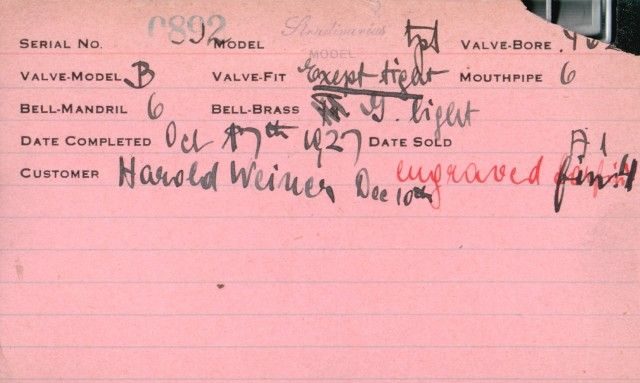 SERIAL NO. 0892 MODEL Stradivarius MODEL Tpt VALVE-BORE .462
VALVE-MODEL B VALVE-FIT Exept tight MOUTHPIPE 6
BELL-MANDRIL 6 BELL-BRASS G. light
DATE COMPLETED Oct 17th 1927 DATE SOLD A1
CUSTOMER Harold Weiner Dec 10th engraved fin: 4